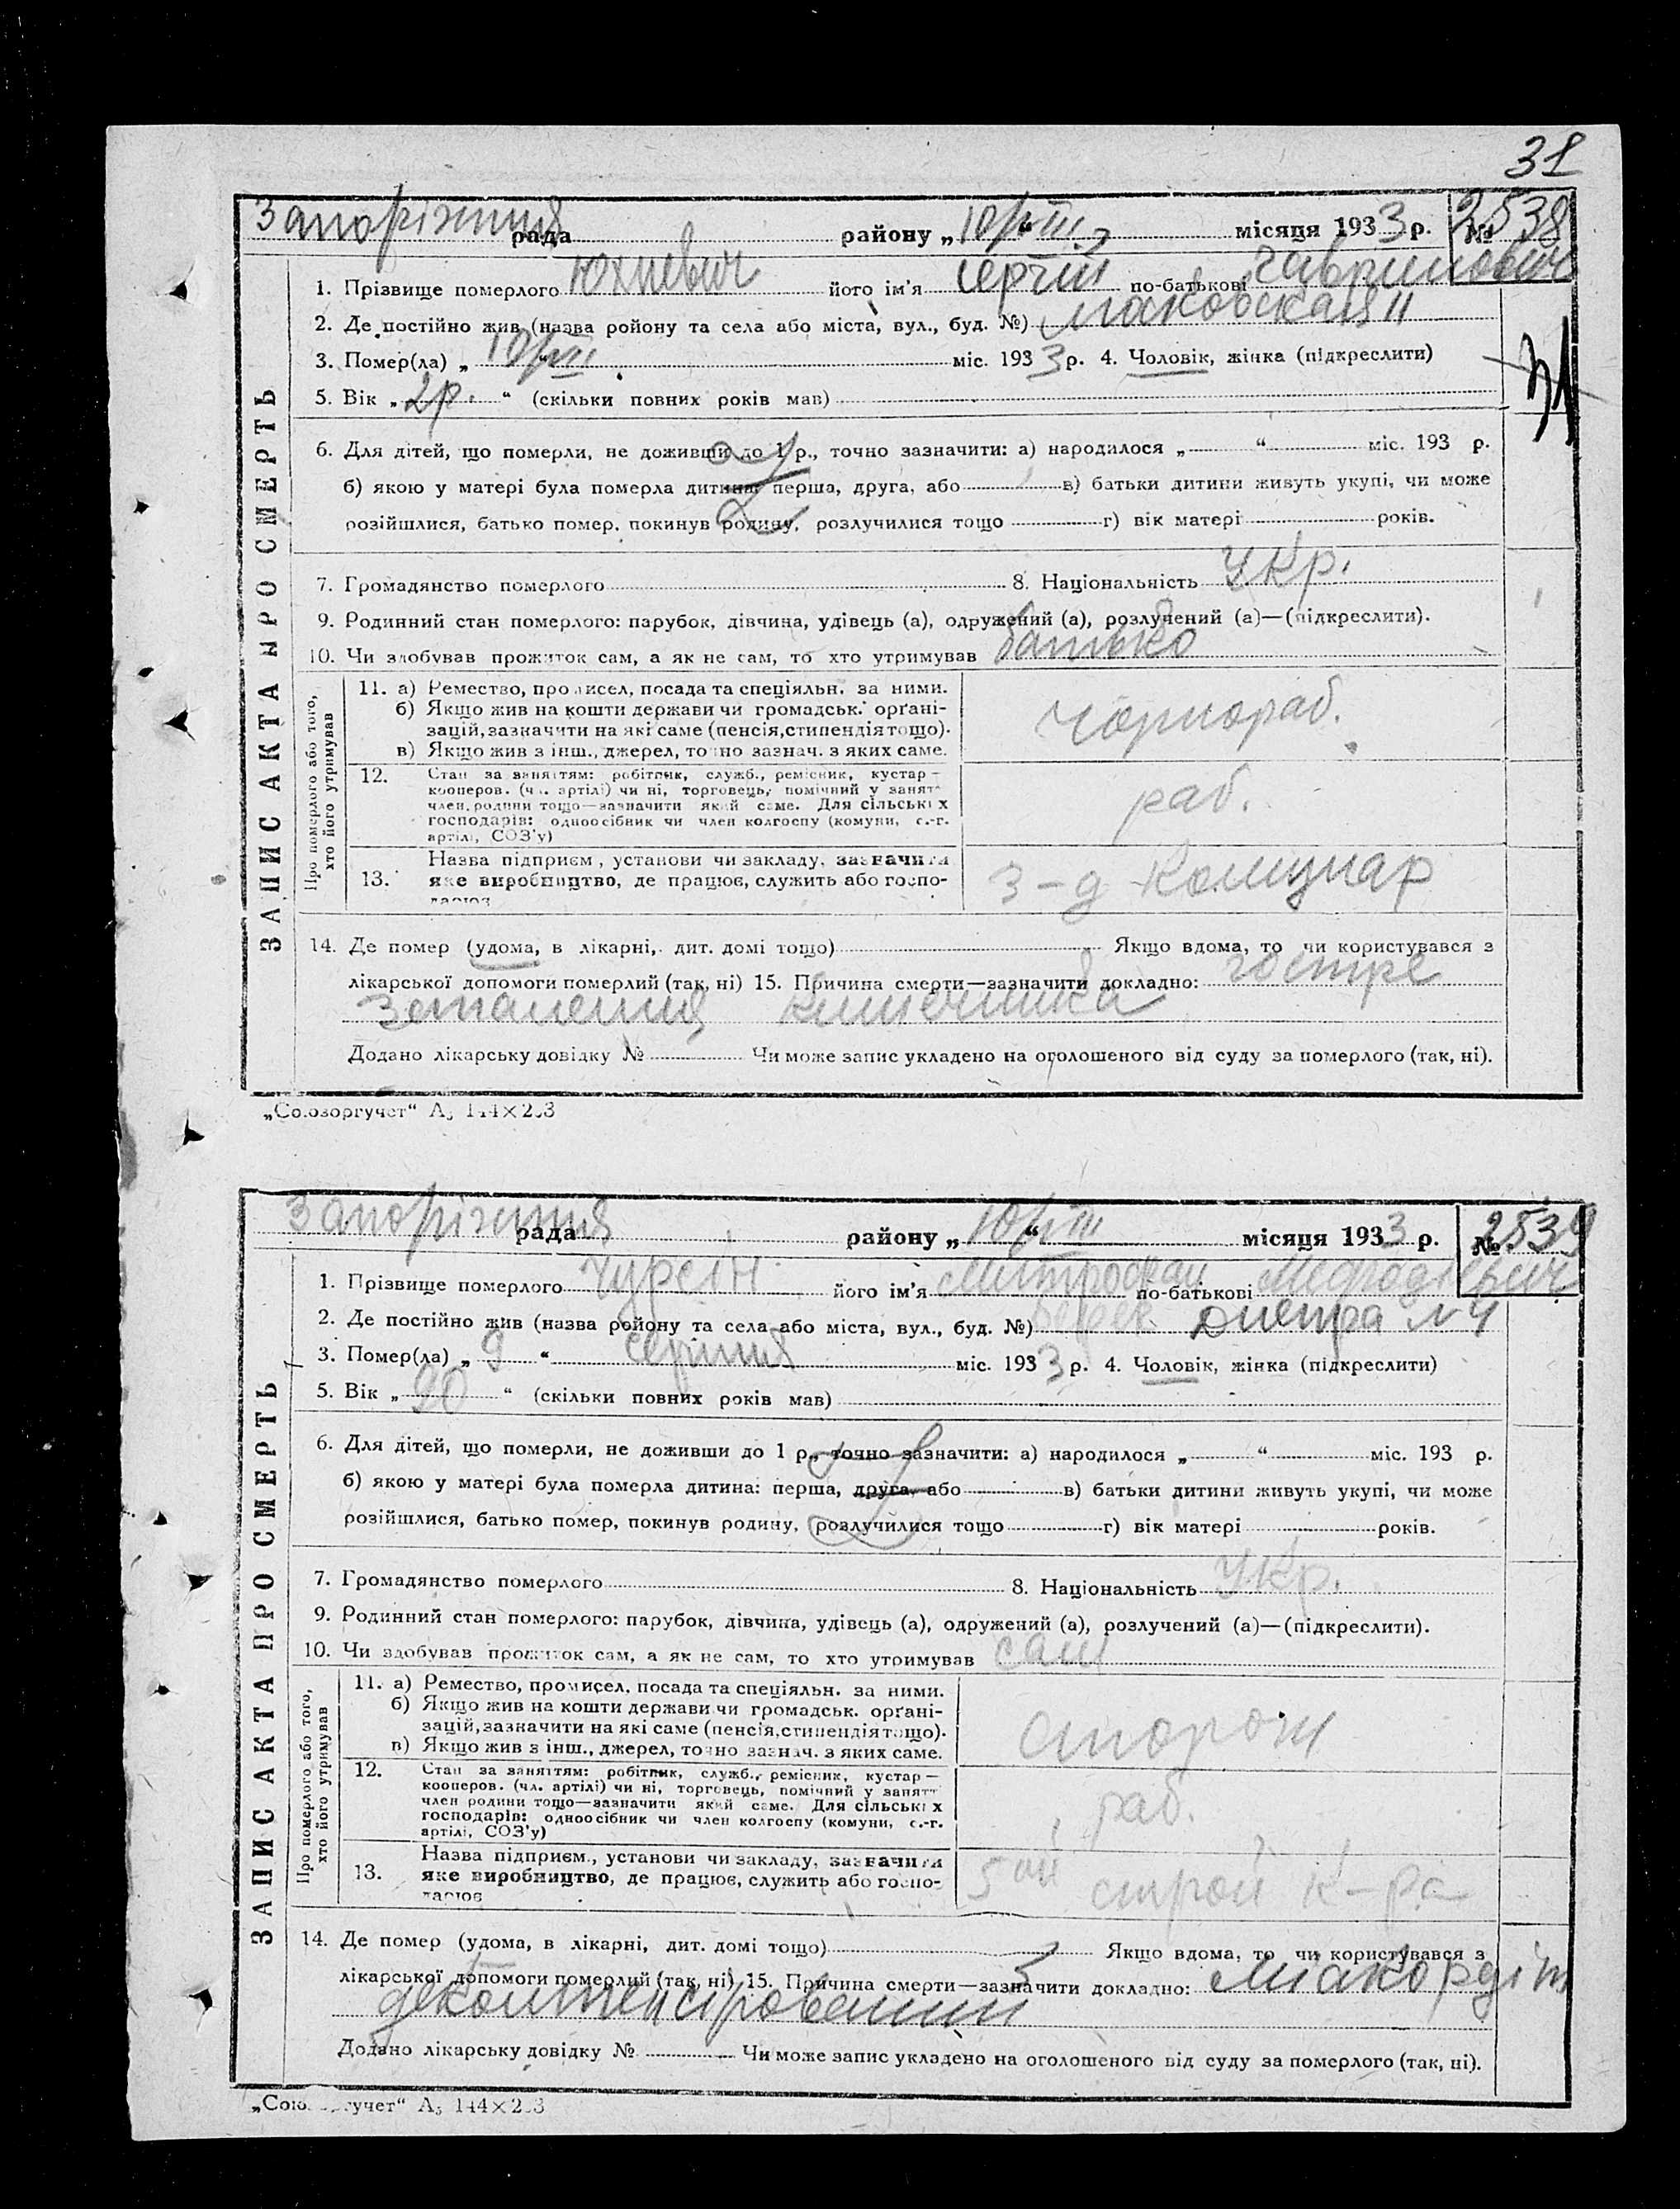 31
Запоріжжя рада району „10/VIII“ місяця 1933 р. № 2538
ЗАПИС АКТА ПРО СМЕРТЬ
1. Прізвище померлого Юхневич його ім'я Сергій по-батькові Гаврилович
2. Де постійно жив (назва району та села або міста, вул., буд. №) 11
3. Помер(ла) „ 10/VIII “ міс. 1933 р. 4. Чоловік, жінка (підкреслити)
5. Вік „ 2 р. “ (скільки повних років мав)
6. Для дітей, що померли, не доживши до 1 р., точно зазначити: а) народилося „ “ міс. 193 р.
б) якою у матері була померла дитина: перша, друга, або в) батьки дитини живуть укупі, чи може
розійшлися, батько помер, покинув родину, розлучилися тощо г) вік матері років.
7. Громадянство померлого 8. Національність Укр.
9. Родинний стан померлого: парубок, дівчина, удівець (а), одружений (а), розлучений (а)—(підкреслити).
10. Чи здобував прожиток сам, а як не сам, то хто утримував батько
Про померлого або того, хто його утримував
11. а) Ремество, промисел, посада та спеціяльн. за ними.
б) Якщо жив на кошти держави чи громадськ. орґані-
зацій, зазначити на які саме (пенсія, стипендія тощо).
в) Якщо жив з інш., джерел, точно зазнач. з яких саме.
Чорнораб.
12. Стан за заняттям: робітник, служб., ремісник, кустар—
кооперов. (чл. артілі) чи ні, торговець, помічний у занятт
член родини тощо—зазначити який саме. Для сільських
господарів: одноосібник чи член колгоспу (комуни, с.-г.
артілі, СОЗ'у)
раб.
13. Назва підприєм., установи чи закладу, зазначити
яке виробництво, де працює, служить або госпо-
дарює
З-д Комунар
14. Де помер (удома, в лікарні, дит. домі тощо) Якщо вдома, то чи користувався з
лікарської допомоги померлий (так, ні) 15. Причина смерти—зазначити докладно: гостре
запалення кишечника
Додано лікарську довідку № Чи може запис укладено на оголошеного від суду за померлого (так, ні).
„Союзоргучет“ А5 144×203
Запоріжжя рада району „10/VIII“ місяця 1933 р. № 2539
ЗАПИС АКТА ПРО СМЕРТЬ
1. Прізвище померлого Чурсін його ім'я Митрофан по-батькові Мефодієвич
2. Де постійно жив (назва району та села або міста, вул., буд. №) Берег Днепра № 4
3. Помер(ла) „ 9 “ серпня міс. 1933 р. 4. Чоловік, жінка (підкреслити)
5. Вік „ “ (скільки повних років мав)
6. Для дітей, що померли, не доживши до 1 р., точно зазначити: а) народилося „ “ міс. 193 р.
б) якою у матері була померла дитина: перша, друга, або в) батьки дитини живуть укупі, чи може
розійшлися, батько помер, покинув родину, розлучилися тощо г) вік матері років.
7. Громадянство померлого 8. Національність Укр.
9. Родинний стан померлого: парубок, дівчина, удівець (а), одружений (а), розлучений (а)—(підкреслити).
10. Чи здобував прожиток сам, а як не сам, то хто утримував сам
Про померлого або того, хто його утримував
11. а) Ремество, промисел, посада та спеціяльн. за ними.
б) Якщо жив на кошти держави чи громадськ. орґані-
зацій, зазначити на які саме (пенсія, стипендія тощо).
в) Якщо жив з інш., джерел, точно зазнач. з яких саме.
сторож
12. Стан за заняттям: робітник, служб., ремісник, кустар—
кооперов. (чл. артілі) чи ні, торговець, помічний у занятт
член родини тощо—зазначити який саме. Для сільських
господарів: одноосібник чи член колгоспу (комуни, с.-г.
артілі, СОЗ'у)
раб.
13. Назва підприєм., установи чи закладу, зазначити
яке виробництво, де працює, служить або госпо-
дарює
5ой строй к-ра
14. Де помер (удома, в лікарні, дит. домі тощо) Якщо вдома, то чи користувався з
лікарської допомоги померлий (так, ні) 15. Причина смерти—зазначити докладно: міокордіт
Додано лікарську довідку № Чи може запис укладено на оголошеного від суду за померлого (так, ні).
„Союзоргучет“ А5 144×203